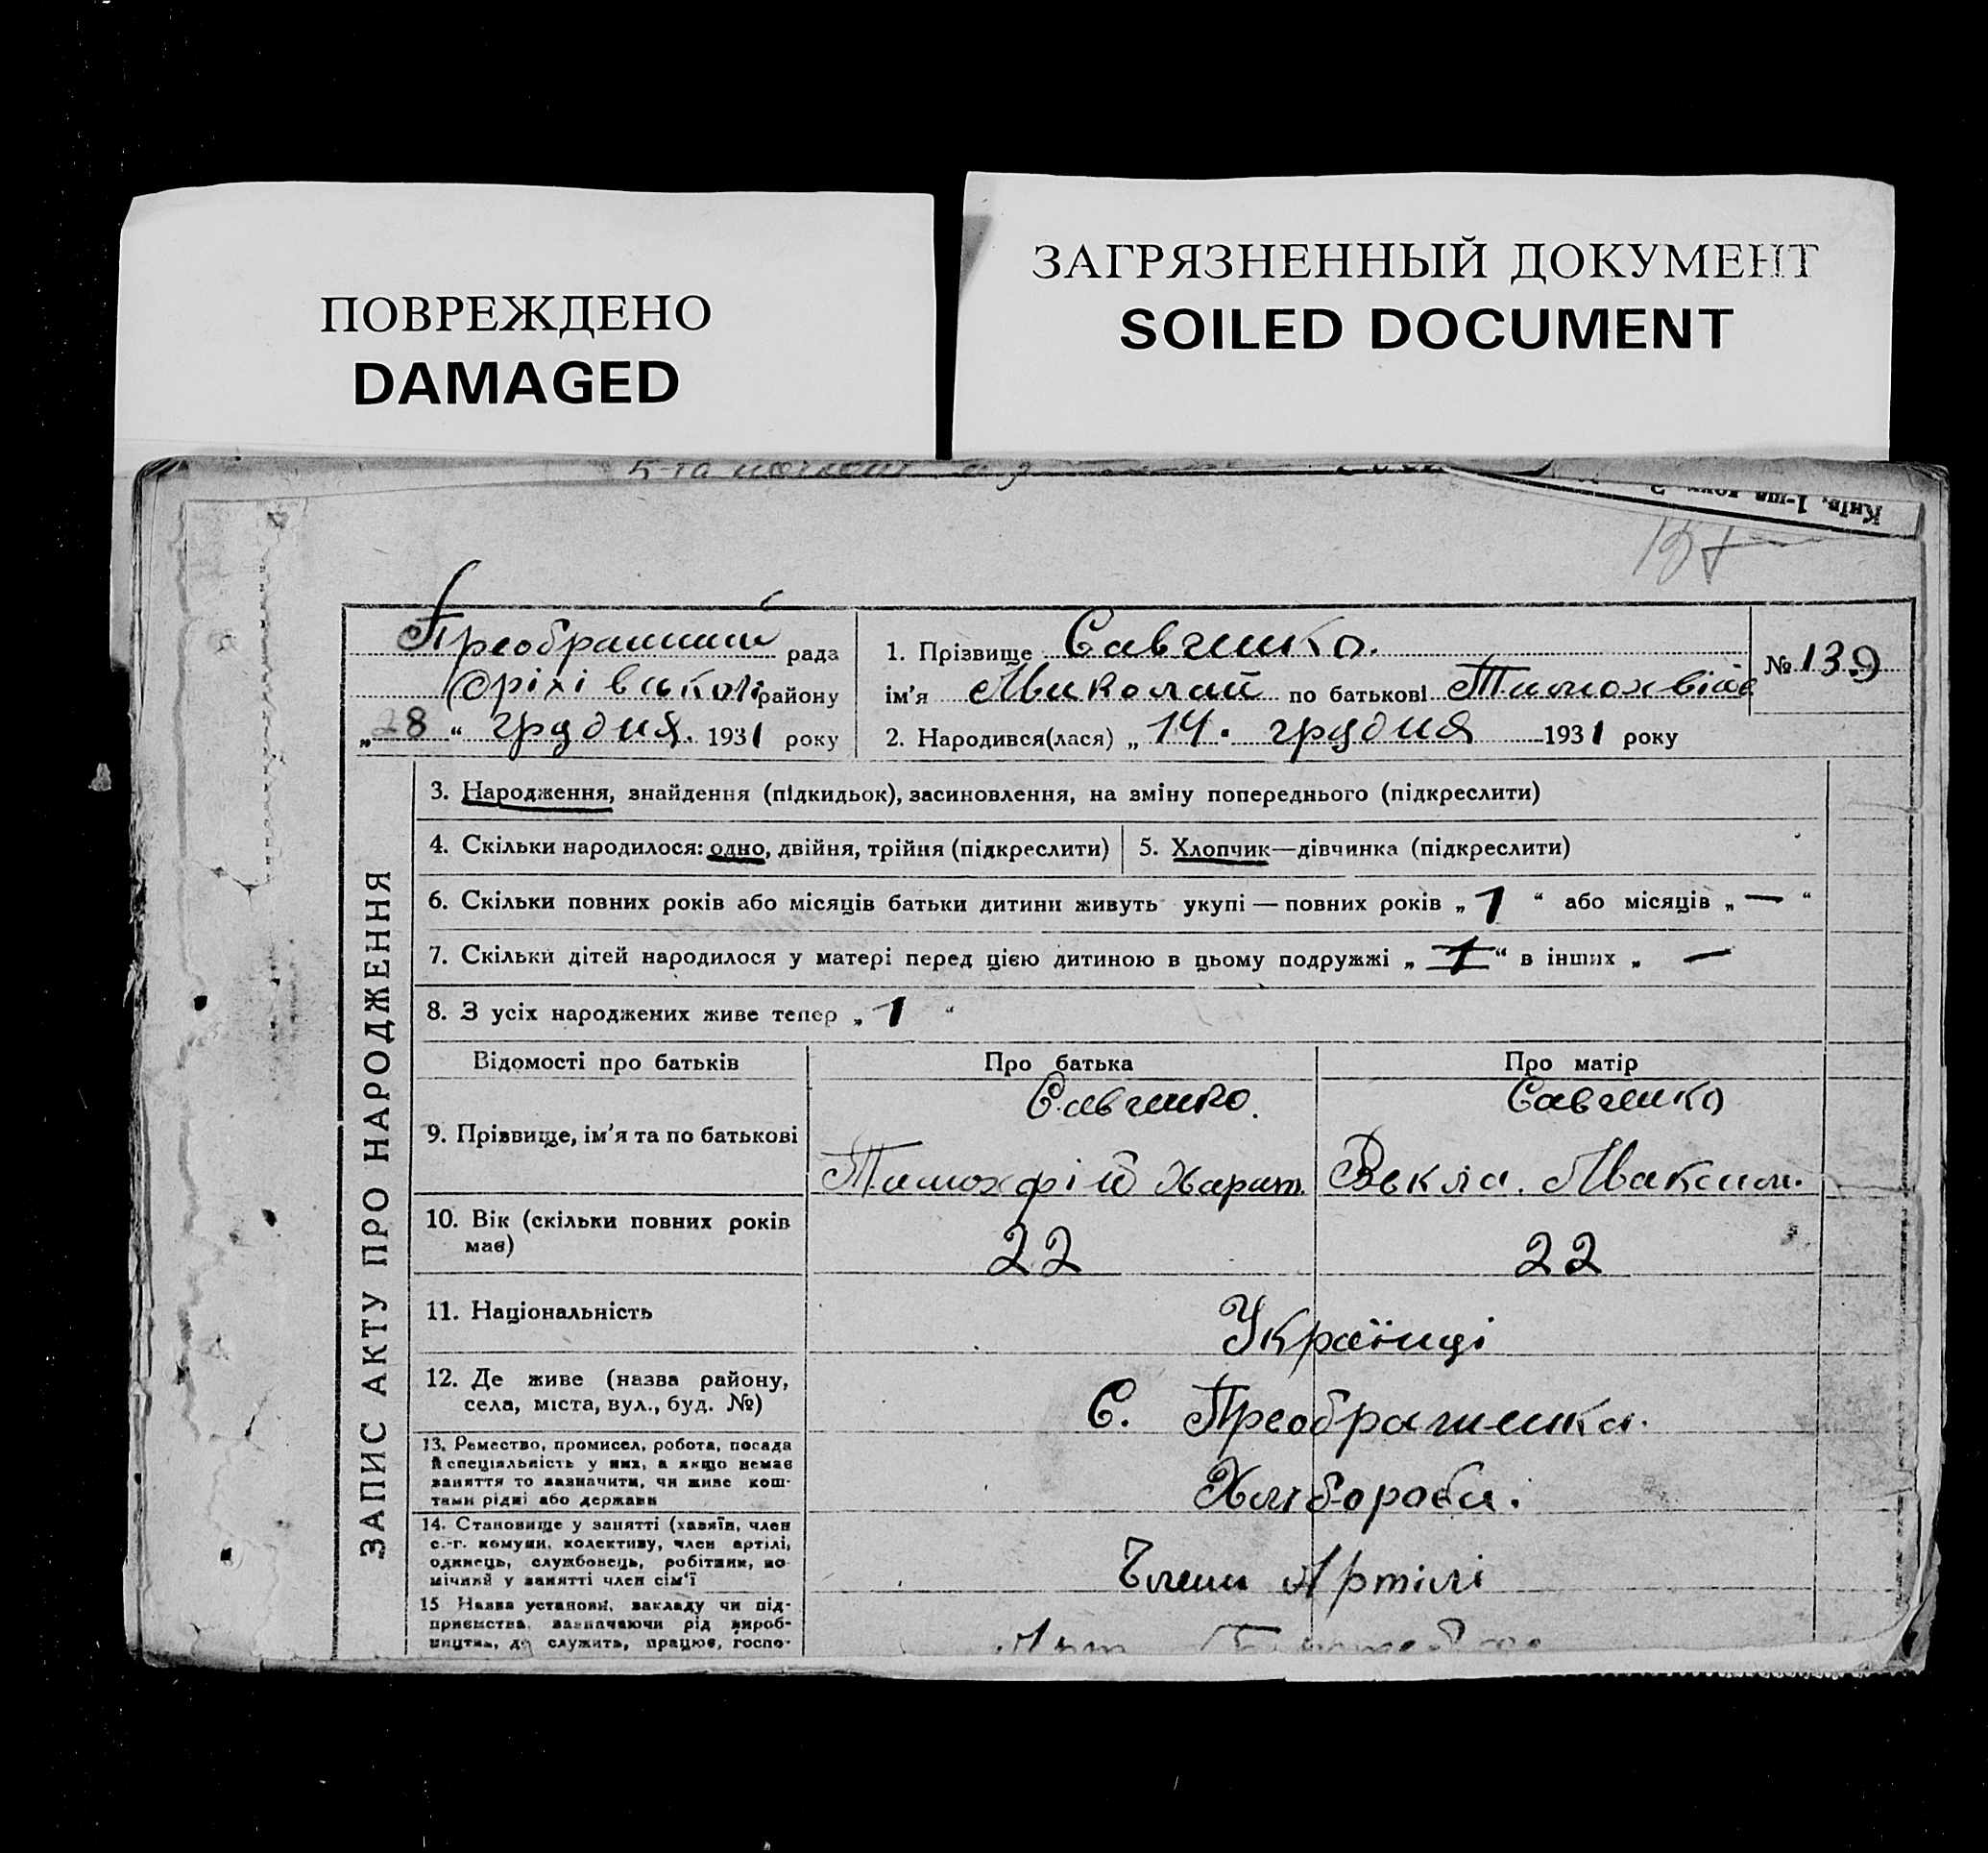 ПОВРЕЖДЕНО
DAMAGED
ЗАГРЯЗНЕННЫЙ ДОКУМЕНТ
SOILED DOCUMENT
Київ, 1-ша
рада
Оріхівської району
„28“ грудня. 1931 року
1. Прізвище Савченко.
ім'я Миколай по батькові
2. Народився(лася) „14. грудня 1931 року
№ 139
ЗАПИС АКТУ ПРО НАРОДЖЕННЯ
3. Народження, знайдення (підкидьок), засиновлення, на зміну попереднього (підкреслити)
4. Скільки народилося: одно, двійня, трійня (підкреслити)
5. Хлопчик—дівчинка (підкреслити)
6. Скільки повних років або місяців батьки дитини живуть укупі — повних років „1“ або місяців „—“
7. Скільки дітей народилося у матері перед цією дитиною в цьому подружжі „1“ в інших „ —
8. З усіх народжених живе тепер „1“
Відомості про батьків
Про батька
Про матір
9. Прізвище, ім'я та по батькові
Савченко.
Тимохфій Харит.
Савченко
Векла. Максим.
10. Вік (скільки повних років має)
22
22
11. Національність
Українці
12. Де живе (назва району,
села, міста, вул., буд. №)
С. Преображенка.
13. Ремество, промисел, робота, посада
й спеціяльність у них, а якщо немає
заняття то зазначити, чи живе кош-
тами рідні або держави
Хлібороби.
14. Становище у занятті (хазяїн, член
с.-г. комуни, колективу, член артілі,
одинець, службовець, робітник, по-
мічний у занятті член сім'ї
Члени Артілі
15 Назва установи, закладу чи під-
приємства, зазначаючи рід вироб-
ництва, де служить, працює, госпо-